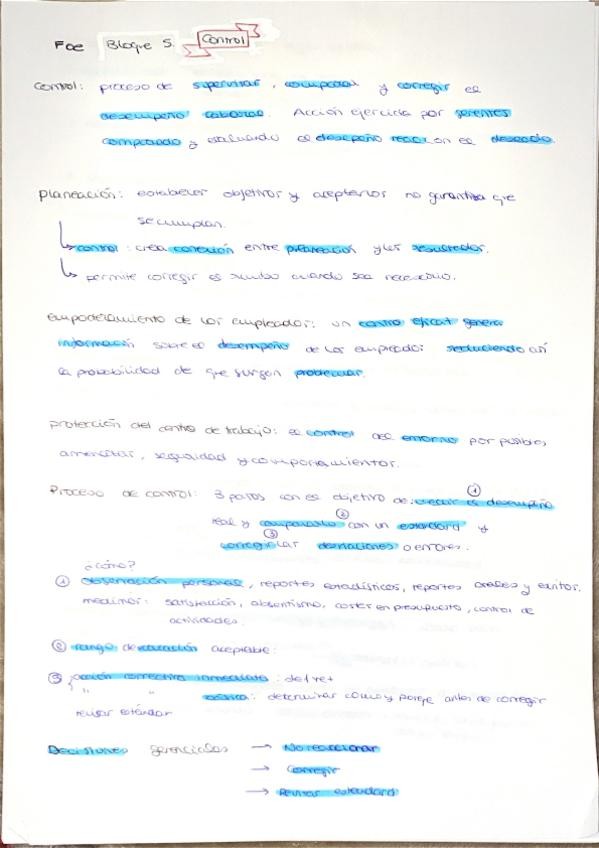 FOE Bloque 5. Control
Control: proceso de supervisar, comparar y corregir el
desempeño laboral. Acción ejercida por gerentes
comparando y evaluando el desempeño real con el deseado.
Planeación: establecer objetivos y aceptarlos no garantiza que
se cumplan.
↳ control: crea conexión entre planeación y los resultados.
↳ permite corregir el rumbo cuando sea necesario.
Empoderamiento de los empleados: un control eficaz genera
información sobre el desempeño de los empleados reduciendo así
la probabilidad de que surgan problemas.
protección del centro de trabajo: el control del entorno por posibles
amenazas, seguridad y comportamientos.
Proceso de control: 3 pasos con el objetivo de: medir el desempeño ①
real y compararlo ② con un estandard y
corregir ③ las desviaciones o errores.
¿cómo?
① Observación personal, reportes estadísticos, reportes orales y escritos.
medimos: satisfacción, absentismo, costes en presupuesto, control de
actividades.
② rango de variación aceptable.
③ acción correctiva inmediata:
" " básica: determinar cómo y porqe antes de corregir
revisar estándar
Decisiones gerenciales → No reaccionar
→ Corregir
→ Revisar estandard